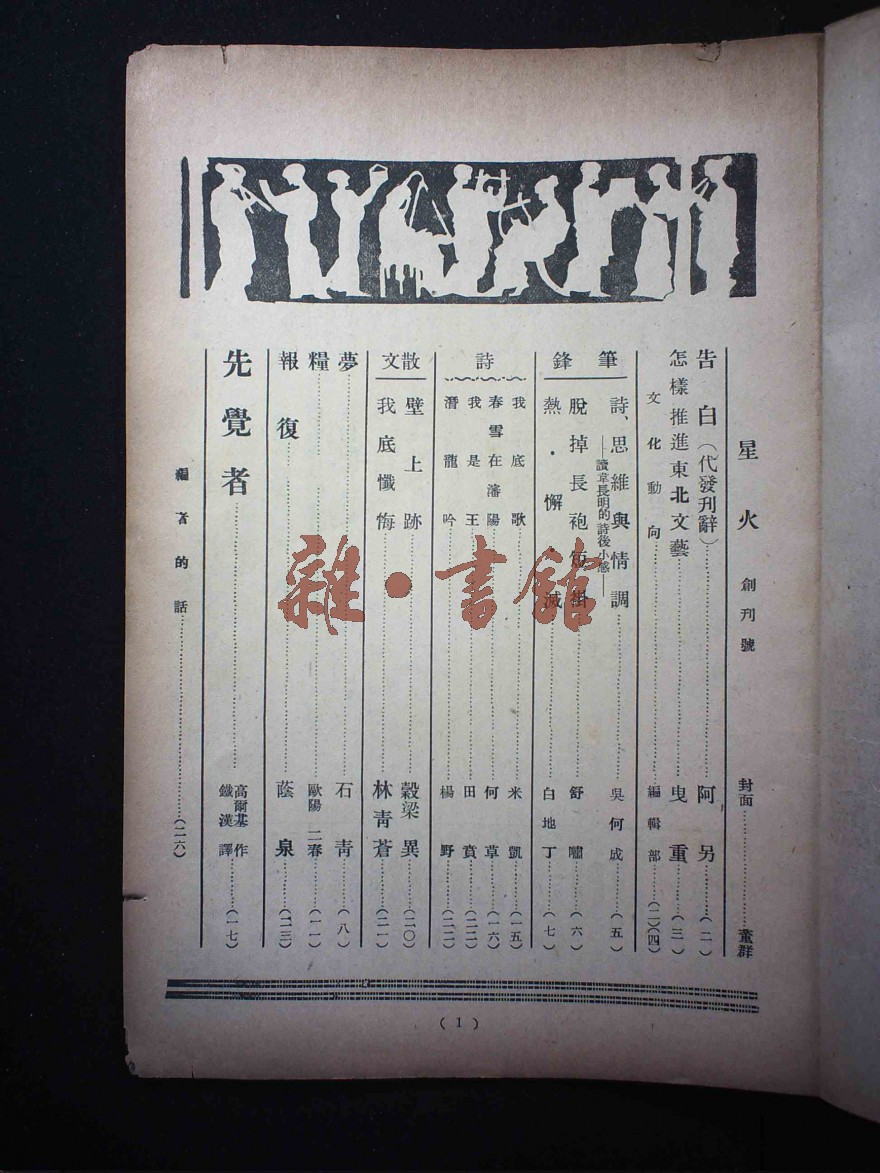 星火 創刊號 封面………董群
告白（代發刊辭）………阿另………（二）
怎樣推進東北文藝………曳重………（三）
文化動向………編輯部………（二）（四）
筆鋒
詩、思維與情調………吳何成………（五）
——讀韋長明的詩後小感——
脫掉長袍短褂………舒嘯………（六）
熱·懈·滅………白地丁………（七）
詩
我底歌………米凱………（一五）
春雪在瀋陽………何草………（一六）
我是王………田賁………（二二）
潛龍吟………楊野………（二二）
散文
壁上跡………穀梁異………（二〇）
我底懺悔………林青蒼………（二一）
夢………石青………（八）
糧………歐陽二春………（一一）
報復………蔭泉………（二三）
先覺者………高爾基作 鐵漢譯………（一七）
編者的話………（二六）
（1）
雜·書館